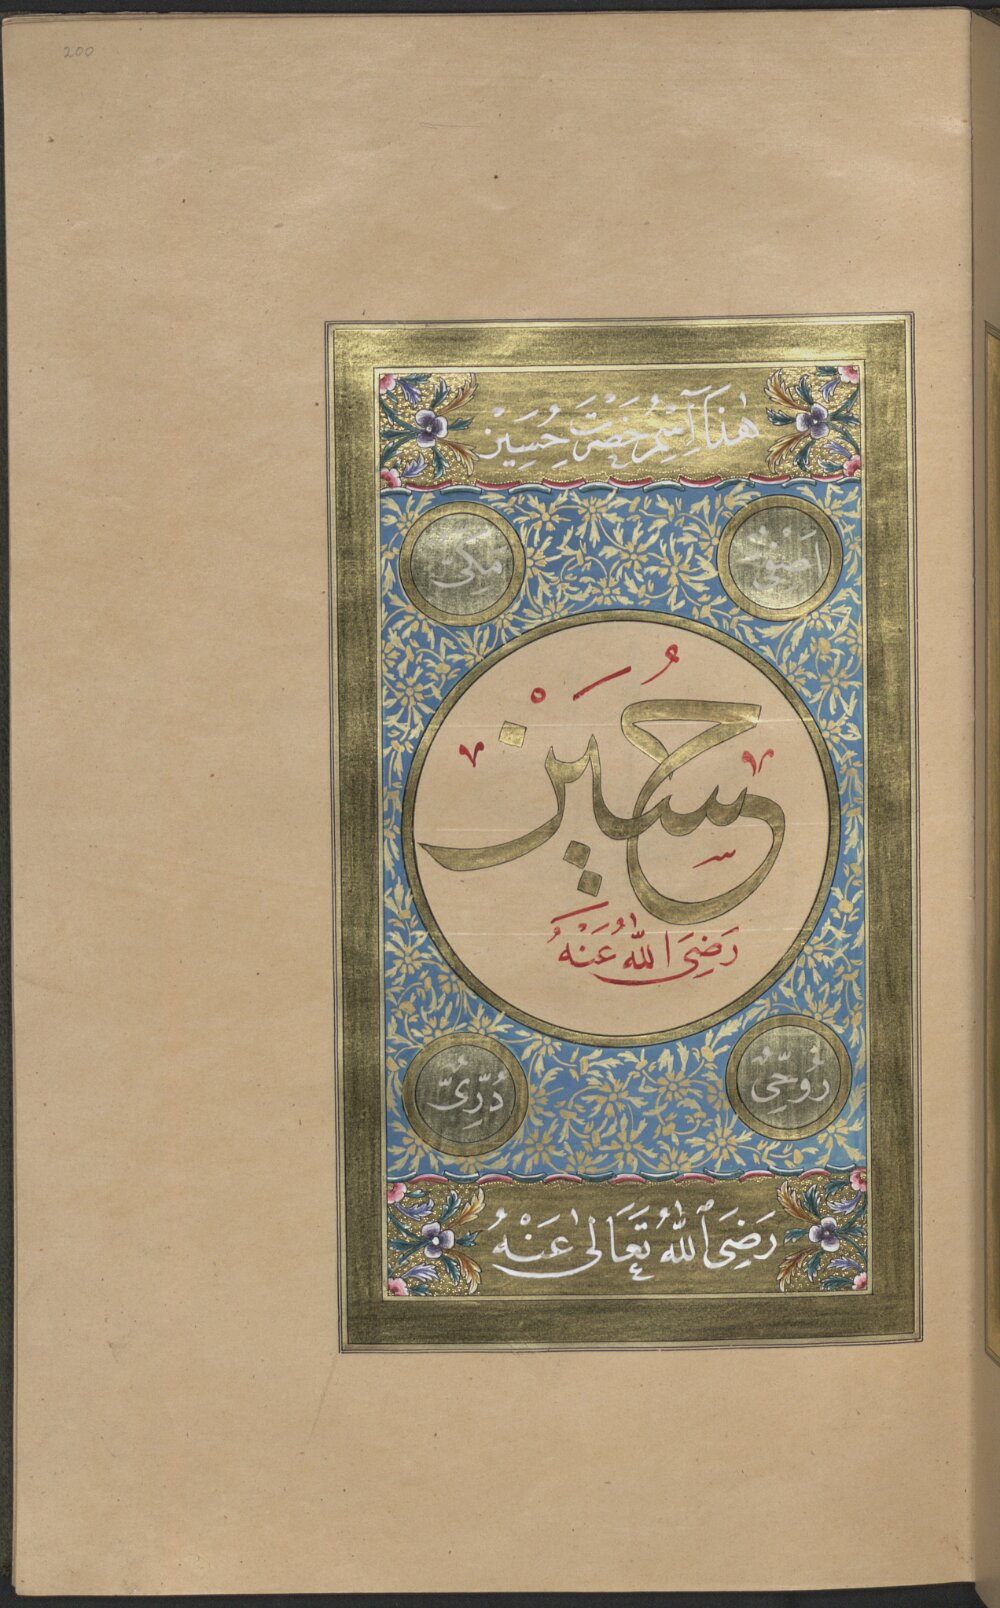 200
هٰذَا اِسْمِ حَضْرَتِ حُسَيْنْ
حُسَيْنْ
رَضِيَ اللّٰهُ عَنْهُ
رُوحِّىُ
دُرِّىُّ
رَضِىَ ٱللّٰهُ تَعَالىٰ عَنْهُ